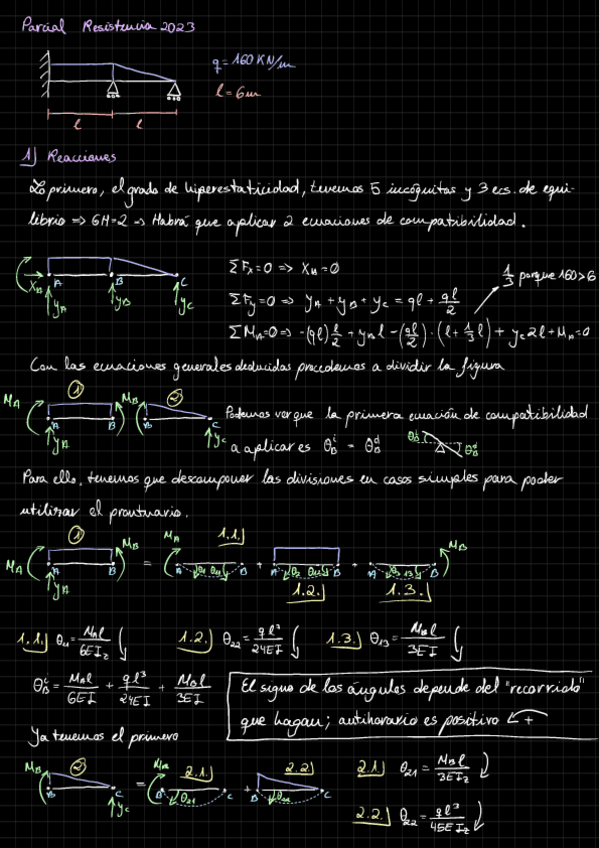 Parcial Resistencia 2023
q = 160 KN/m
l = 6m
l l
1) Reacciones
Lo primero, el grado de hiperestaticidad, tenemos 5 incógnitas y 3 ecs. de equi-
librio => GH=2 -> Habrá que aplicar 2 ecuaciones de compatibilidad.
XA A B C
YA YB YC
ΣFx=0 => XA=0
ΣFy=0 => YA + YB + YC = ql + ql/2
1/3 porque 160>0
ΣMA=0 => -(ql) l/2 + YB l - (ql/2) · (l + 1/3 l) + YC 2l + MA = 0
Con las ecuaciones generales deducidas procedemos a dividir la figura
MA 1 MB MB 2
A B B C
YA YC
Podemos ver que la primera ecuación de compatibilidad
a aplicar es θB^i = θB^d
θB^i θB^d
Para ello, tenemos que descomponer las divisiones en casos simples para poder
utilizar el prontuario.
MA 1 MB = MA 1.1. + 1.2. + 1.3. MB
1.1. θ11 = MA l/6EIz 1.2. θ22 = ql³/24EI 1.3. θ13 = MB l/3EI
θB^i = MA l/6EI + ql³/24EI + MB l/3EI
El signo de los ángulos depende del "recorrido"
que hagan; antihorario es positivo +
Ya tenemos el primero
MB 2 = MB 2.1. + 2.2.
B C YC B θ21 C B θ22 C
2.1. θ21 = MB l/3EIz
2.2. θ22 = ql³/45EIz